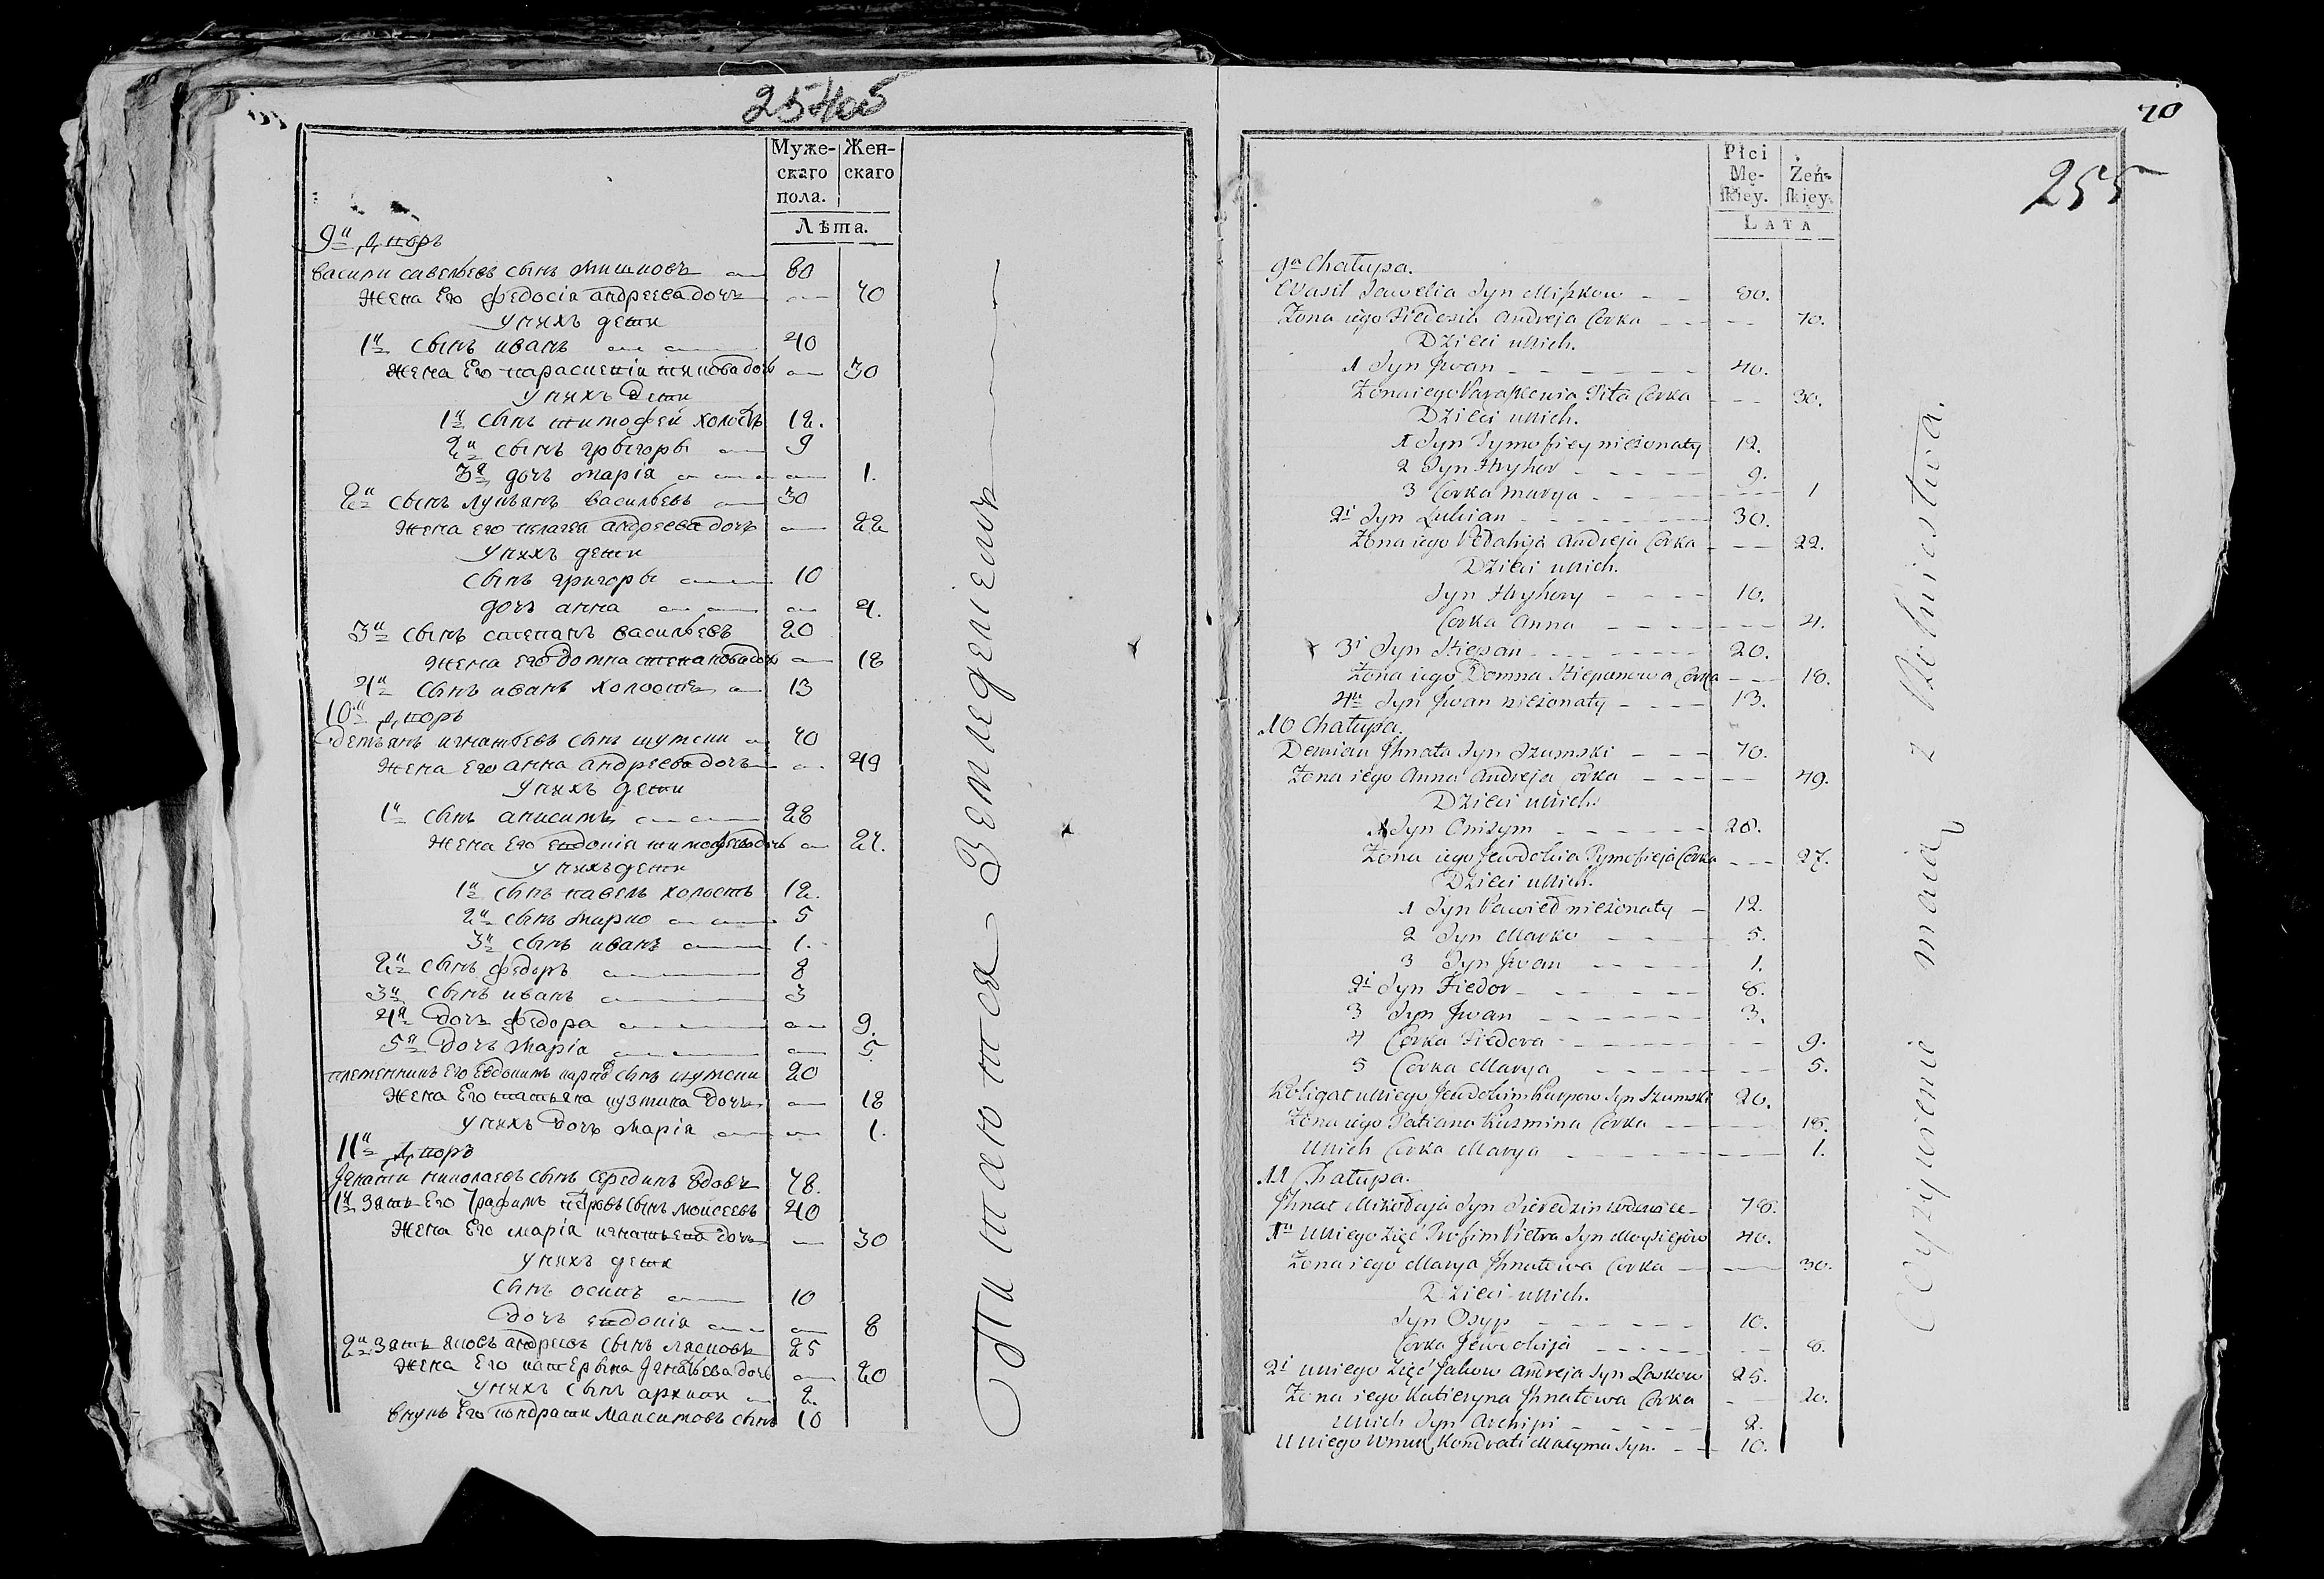 254об
Муже-
скаго
пола.
Жен-
скаго
Лѣта.
9й дворъ
Васили савельевъ сынъ мишковъ 80
жена Его федосіа андреева дочь 70
унихъ дети
1й сынъ иванъ 40
жена Его параскевіа титова дочь 30
унихъ дети
1й сынъ тимофей холостъ 12.
2й сынъ грыгоры 9
3я дочь мариа 1.
2й сынъ лукьянъ васильевъ 30
жена Его пелагея андреева дочь 22
унихъ дети
сынъ григоры 10
дочь анна 4.
3й сынъ степанъ васильевъ 20
жена Его домна степанова дочь 18
4й сынъ иванъ холостъ 13
10й дворъ
демьянъ игнатьевъ сынъ шумски 70
жена Его анна андреева дочь 49
унихъ дети
1й сынъ анисимъ 28
жена Его евдокіа тимофеева дочь 27.
унихъ дети
1й сынъ павелъ холостъ 12.
2й сынъ марко 5
3й сынъ иванъ 1.
2й сынъ федоръ 8
3й сынъ иванъ 3
4я дочь федора 9.
5я дочь мариа 5.
племенникъ Его Евдокимъ карповъ сынъ шумски 20
жена Его татьяна кузмина дочь 18
унихъ дочь мариа 1.
11й дворъ
Игнати николаевъ сынъ середзинъ вдовъ 78.
1й зять Его Трафимъ петровъ сынъ моисеевъ 40
жена Его мариа игнатьева дочь 30
унихъ дети
сынъ осипъ 10
дочь евдокіа 8
2й зять яковъ андреевъ сынъ лясковъ 25
жена Его катерына Игнатьева дочь 20
унихъ сынъ архипи 2.
внукъ Его кондрати максимовъ сынъ 10
Питаются Земледелиемъ
70
255
Płci
Mę-
skiey.
Żeń-
skiey.
LATA
9a Chałupa.
Wasil Sawelia Syn Miszkow 80.
Żona iego Fiedosia Andreja Corka 70.
Dzieci unich.
1 Syn Jwan 40.
Żona iego Paraskewia Tita Corka 30.
Dzieci unich.
1 Syn Tymofiey nieżonaty 12.
2 Syn Hryhor 9.
3 Corka Marya 1
2i Syn Łukian 30.
Żona iego Pełahija Andreja Corka 22.
Dzieci unich.
Syn Hryhory 10.
Corka Anna 4.
3i Syn Stiepan 20.
Żona iego Domna Stiepanowa Corka 18.
4y Syn Jwan nieżonaty 13.
10 Chałupa.
Demian Jhnata Syn Szumski 70.
Żona iego Anna Andreja Corka 49.
Dzieci unich.
1 Syn Onisym 28.
Żona iego Jewdokia Tymofieja Corka 27.
Dzieci unich.
1 Syn Paweł nieżonaty 12.
2 Syn Marko 5.
3 Syn Jwan 1.
2i Syn Fiedor 8.
3 Syn Jwan 3.
4 Corka Fiedora 9.
5 Corka Marya 5.
Koligat uniego Jewdokim Karpow Syn Szumski 20.
Żona iego Tatiana Kuzmina Corka 18.
Unich Corka Marya 1.
11 Chałupa.
Jhnat Mikołaja Syn Sieredzin wdowiec 78.
1y Uniego Zięć Trofim Pietra Syn Moysiejew 40.
Żona iego Marya Jhnatowa Corka 30.
Dzieci unich.
Syn Osyp 10.
Corka Jewdokija 8.
2i uniego Zięć Jakow Andreja Syn Laskow 25.
Żona iego Katieryna Jhnatowa Corka 20.
Unich Syn Archipi 2.
Uniego Wnuk Kondrati Maxyma Syn. 10.
Wyżywienie maią z Rolnictwa.